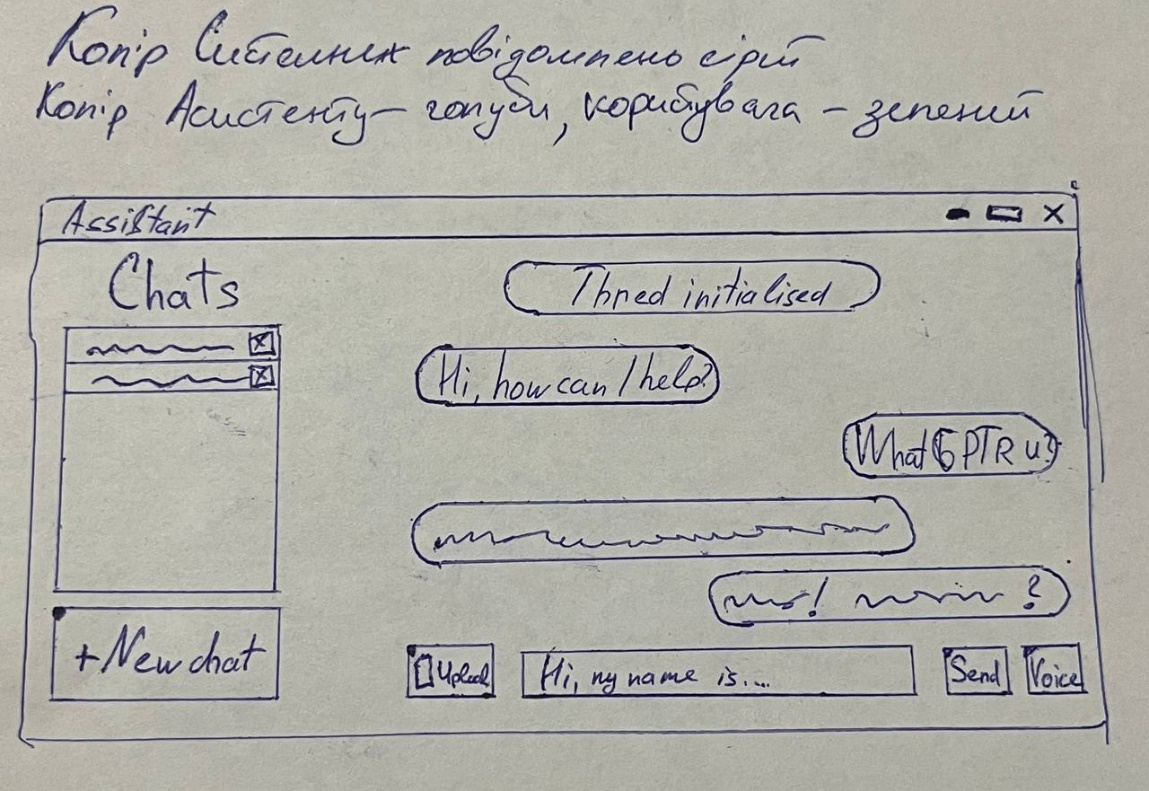 Колір Системних повідомлень сірий
Колір Асистенту – голубий, користувача – зелений
Assistant
Chats
Thred initialised
Hi, how can I help?
What GPT R u?
! ?
+ New chat
Upload
Hi, my name is...
Send
Voice